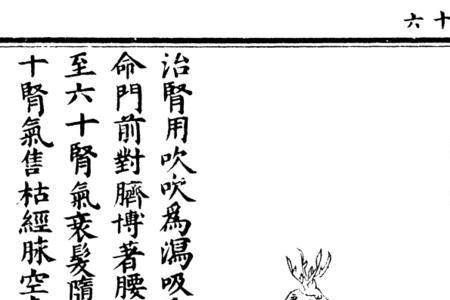 十六
治腎用吹吹爲瀉吸
命門前對臍博著腰
至六十腎氣衰髮隨
十腎氣焦枯經脉空